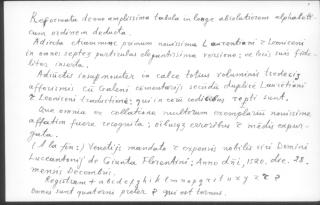 Reformata denuo amplissima tabula in longe absolutiorem alphabeti-
cum ordinem deducta.
Adiecta etiam nunc primum nouissima Laurentiani & Leoniceni
in omnes septem particulas elegantissima versione; ne locis suis fide-
liter inserta.
Adiectis insuper in calce totius voluminis tredecim
afforismis cum Galeni comentarijs secundum duplicem Laurentiani
& Leoniceni traductionem; qui in ceteris codicibus repti sunt.
Que omnia ex collatione multorum exemplarium nouissime
affatim fuere recognita; oibusque erroribus & mendis expur-
gata.
(A la fin:) Venetijs mandato & expensis nobilis viri Domini
Luceantonij de Giunta Florentini; Anno dñi, 1520, die. 28.
mensis Decembris.
Registrum + a b c d e f g h i k l m n o p q r s t u x y z &
Omnes sunt quaterni preter qui est ternus.